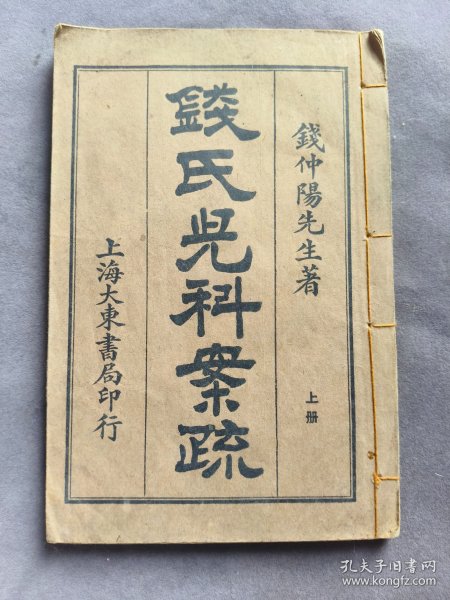 錢仲陽先生著
上册
錢氏兒科案疏
上海大東書局印行
孔夫子旧书网
www.kongfz.com